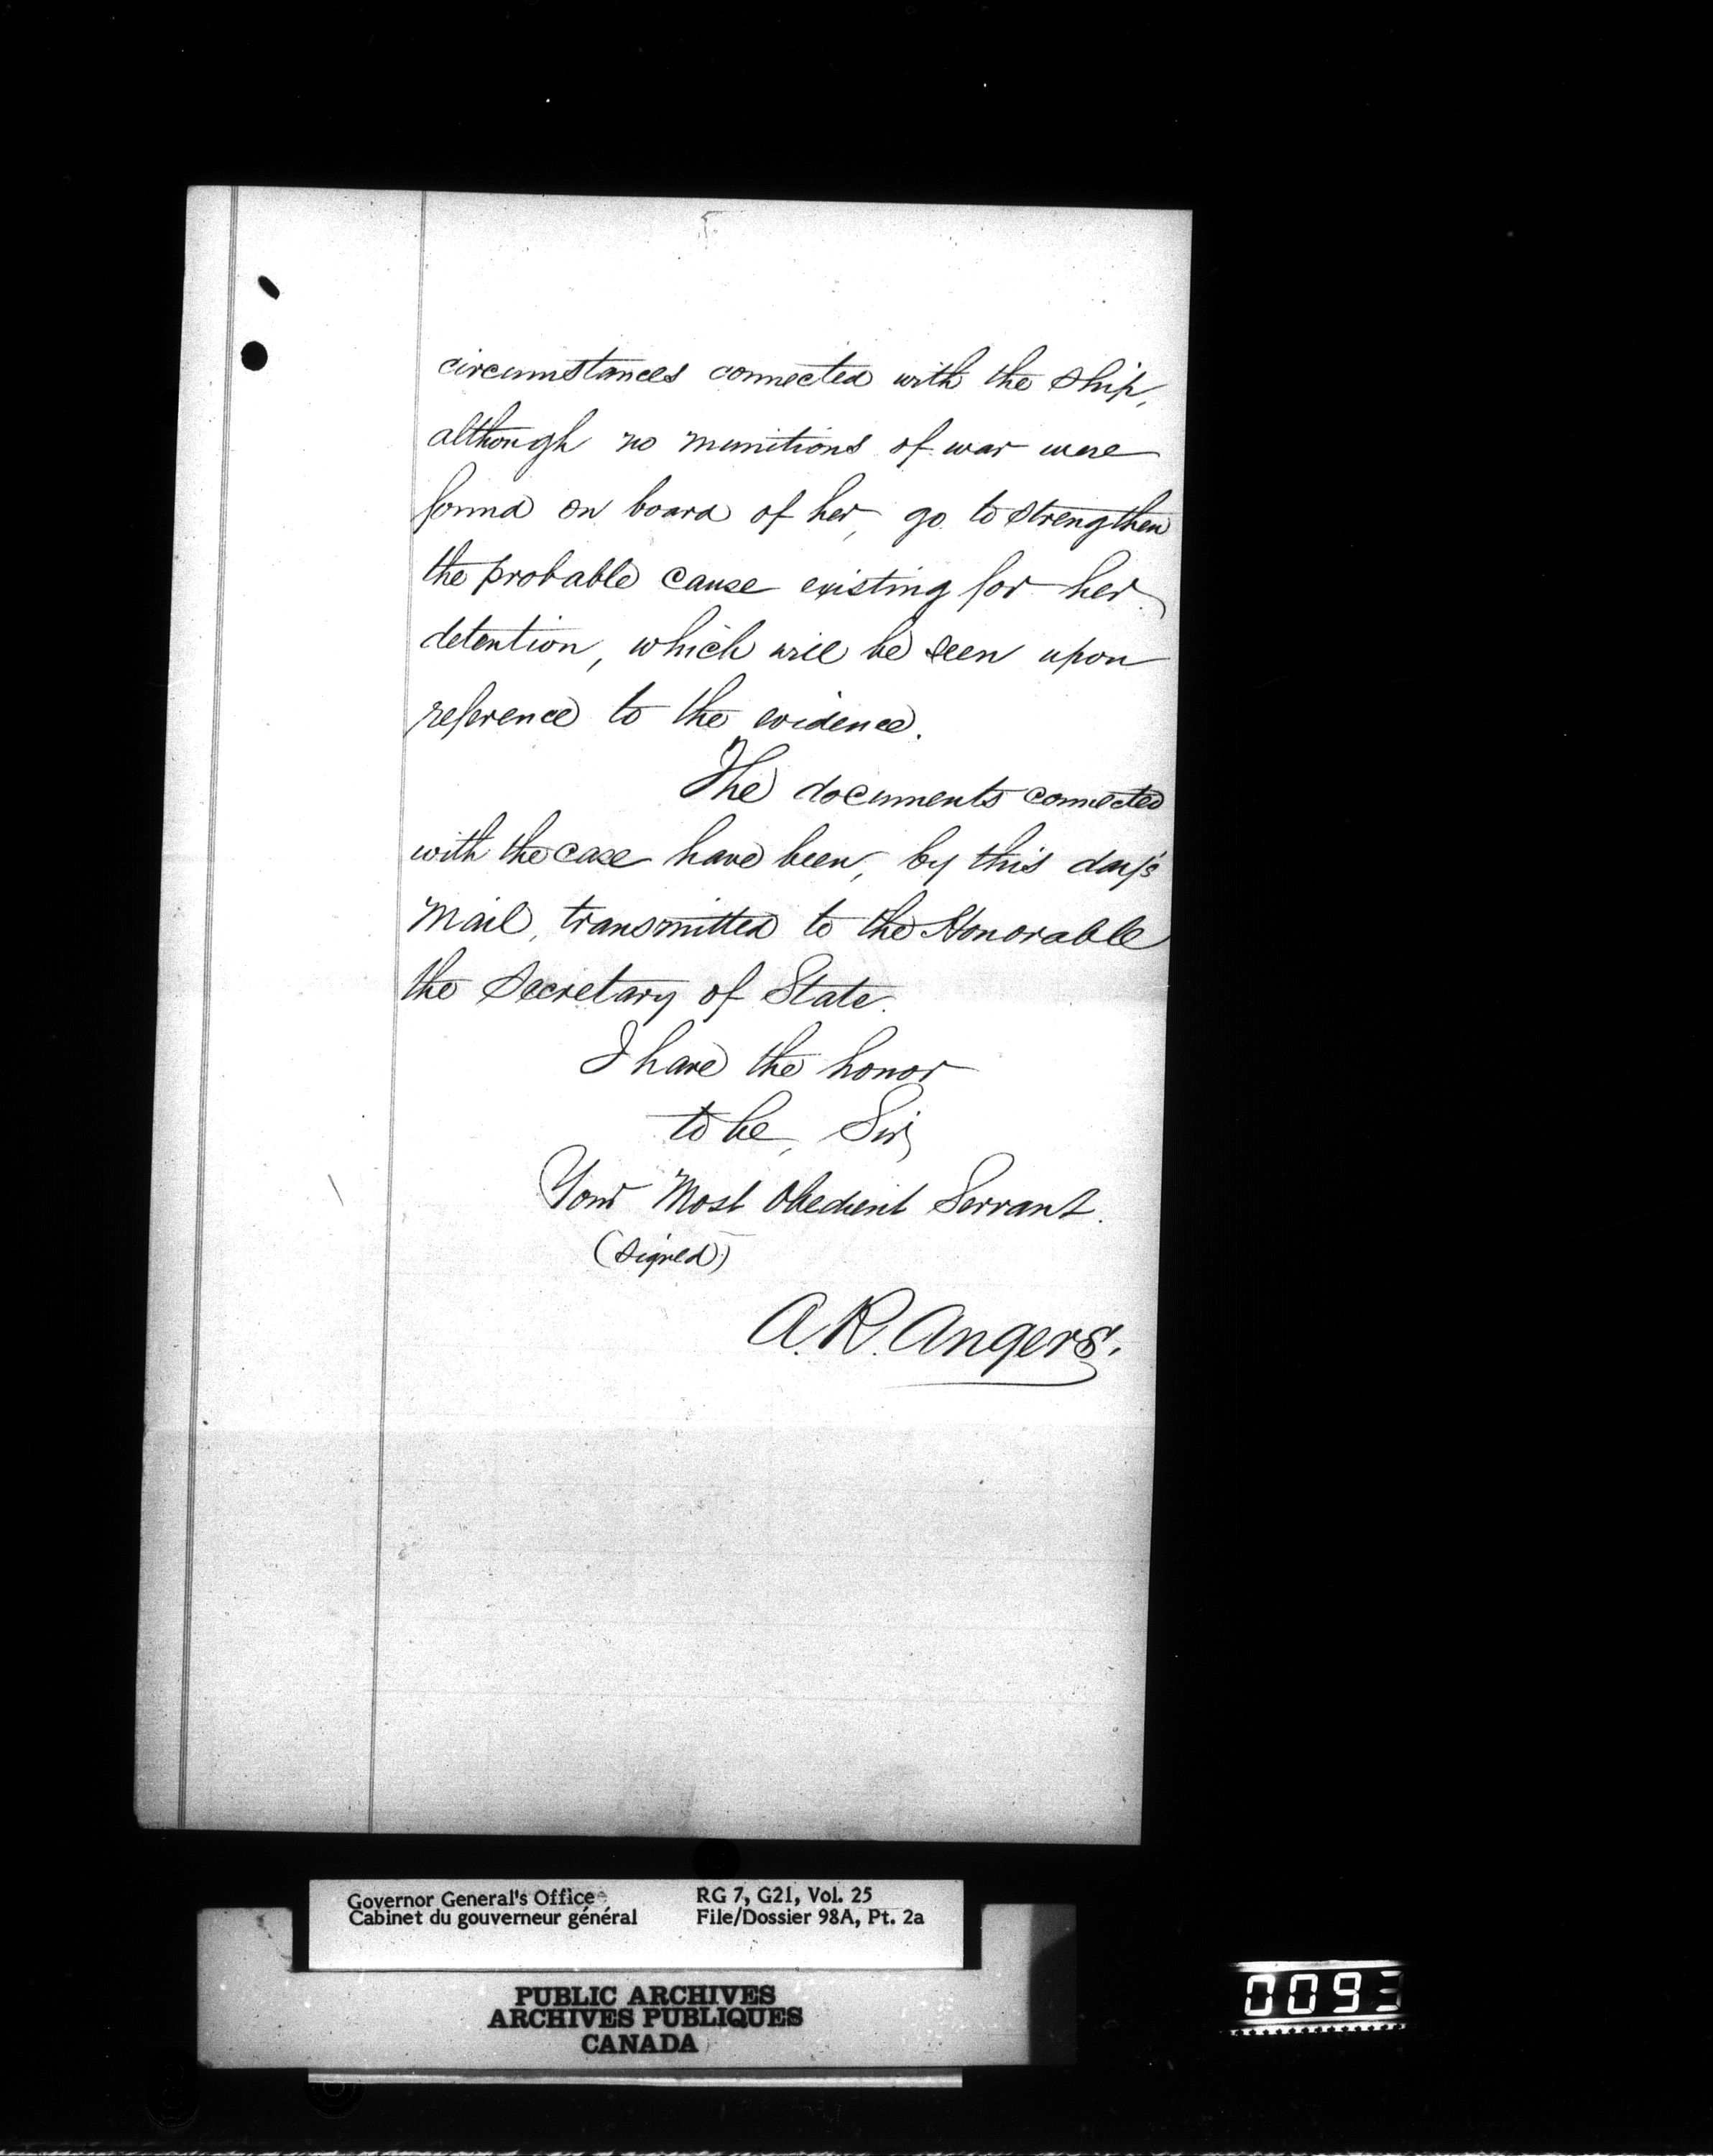 5
circumstances connected with the ship,
although no munitions of war were
found on board of her, go to strengthen
the probable cause existing for her
detention, which will be seen upon
reference to the evidence.
The documents connected
with the case have been, by this day's
Mail, transmitted to the Honorable
the Secretary of State.
I have the honor
to be, Sir,
Your Most Obedient Servant.
(signed)
A. R. Angers.
Governor General's Office
Cabinet du gouverneur général
RG 7, G21, Vol. 25
File/Dossier 98A, Pt. 2a
PUBLIC ARCHIVES
ARCHIVES PUBLIQUES
CANADA
0093